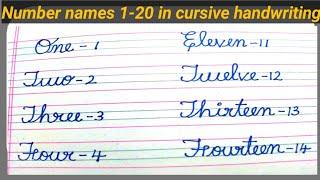 Number names 1-20 in cursive handwriting
One-1
Two-2
Three-3
Four-4
Eleven-11
Twelve-12
Thirteen-13
Fourteen-14